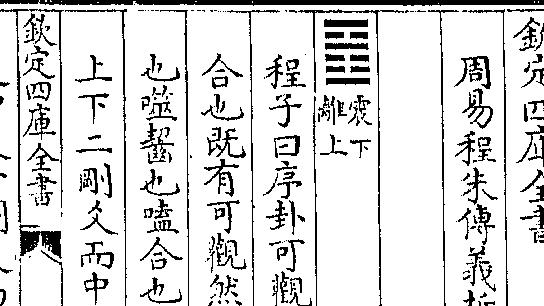 欽定四庫全書
周易程朱傳義折
震下
離上
程子曰序卦可觀
合也既有可觀然
也噬齧也嗑合也
上下二剛爻而中
欽定四庫全書